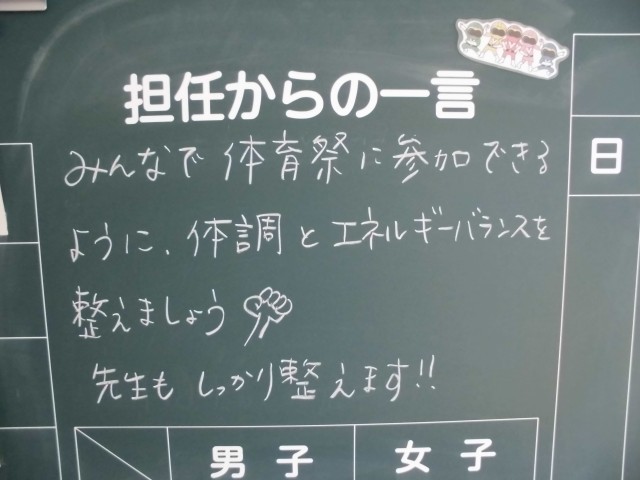 担任からの一言
みんなで体育祭に参加できる
ように、体調とエネルギーバランスを
整えましょう
先生もしっかり整えます!!
日
男子
女子